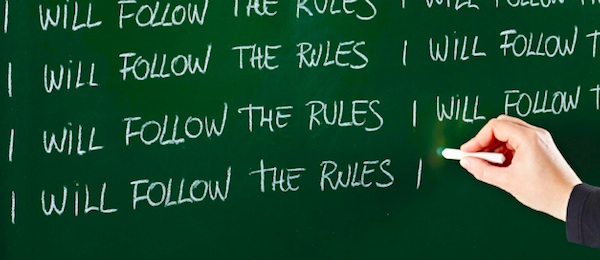 I WILL FOLLOW THE RULES I WILL FOLLOW
I WILL FOLLOW THE RULES I WILL FOLLOW T
I WILL FOLLOW THE RULES I WILL FOLLOW T
I WILL FOLLOW THE RULES I